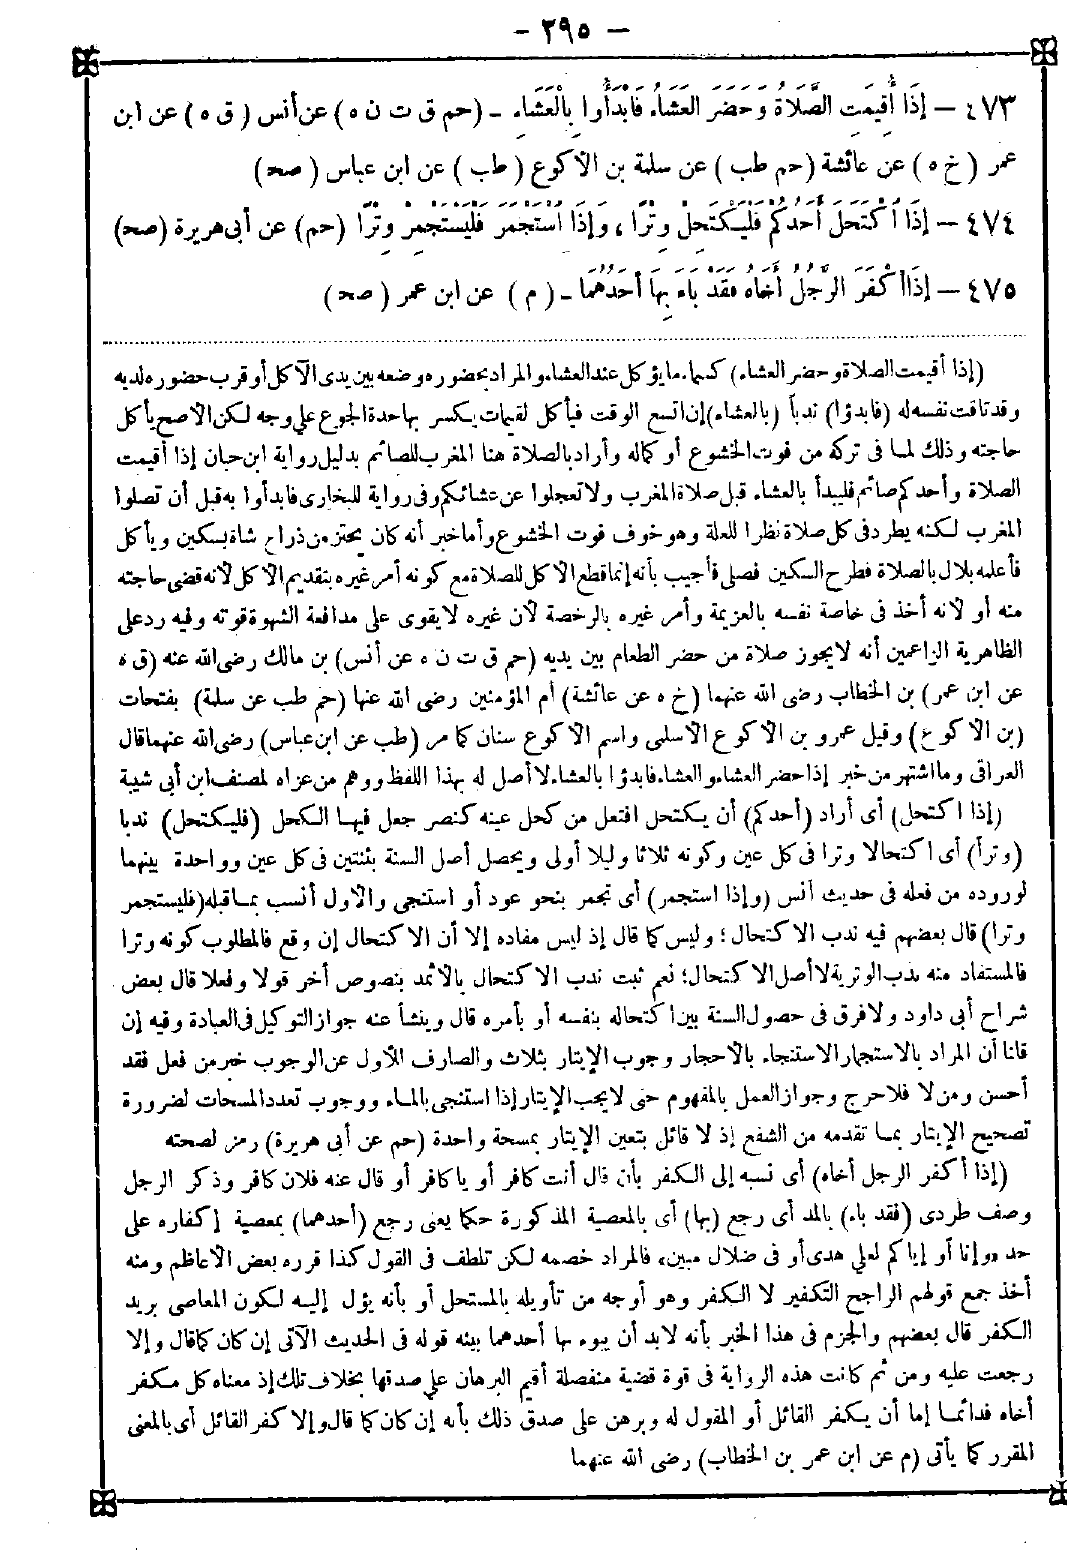 - ٢٩٥ -
٤٧٣ - إِذَا أُقِيمَتِ الصَّلَاةُ وَحَضَرَ العَشَاءُ فَابْدَأُوا بِالْعَشَاءِ - (حم ق ت ن ه) عن أنس (ق ه) عن ابن
عمر (خ ه) عن عائشة (حم طب) عن سلمة بن الأكوع (طب) عن ابن عباس (صح)
٤٧٤ - إِذَا اكْتَحَلَ أَحَدُكُمْ فَلْيَكْتَحِلْ وِتْرًا، وَإِذَا اسْتَجْمَرَ فَلْيَسْتَجْمِرْ وِتْرًا (حم) عن أبي هريرة (صح)
٤٧٥ - إِذَا أَكْفَرَ الرَّجُلُ أَخَاهُ فَقَدْ بَاءَ بِهَا أَحَدُهُمَا - (م) عن ابن عمر (صح)
(إذا أقيمت الصلاة وحضر العشاء) كسماء ما يؤكل عند العشاء والمراد بحضوره وضعه بين يدى الآكل أو قرب حضوره لديه
وقد تاقت نفسه له (فابدؤا) ندبا (بالعشاء) إن اتسع الوقت فيأكل لقيمات يكسر بها حدة الجوع على وجه لكن الأصح يأكل
حاجته وذلك لما فى تركه من فوت الخشوع أو كماله وأراد بالصلاة هنا المغرب للصائم بدليل رواية ابن حبان إذا أقيمت
الصلاة وأحدكم صائم فليبدأ بالعشاء قبل صلاة المغرب ولا تعجلوا عن عشائكم وفى رواية للبخارى فابدأوا به قبل أن تصلوا
المغرب لكنه يطرد فى كل صلاة نظرا للعلة وهو خوف فوت الخشوع وأما خبر أنه كان يحتز من ذراع شاة بسكين ويأكل
فأعلمه بلال بالصلاة فطرح السكين فصلى فأجيب بأنه إنما قطع الأكل للصلاة مع كونه أمر غيره بتقديم الأكل لأنه قضى حاجته
منه أو لأنه أخذ فى خاصة نفسه بالعزيمة وأمر غيره بالرخصة لأن غيره لا يقوى على مدافعة الشهوة قوته وفيه رد على
الظاهرية الزاعمين أنه لا يجوز صلاة من حضر الطعام بين يديه (حم ق ت ن ه عن أنس) بن مالك رضى الله عنه (ق ه
عن ابن عمر) بن الخطاب رضى الله عنهما (خ ه عن عائشة) أم المؤمنين رضى الله عنها (حم طب عن سلمة) بفتحات
(بن الأكوع) وقيل عمرو بن الأكوع الأسلمى واسم الأكوع سنان كما مر (طب عن ابن عباس) رضى الله عنهما قال
العراقى وما اشتهر من خبر إذا حضر العشاء والعشاء فابدؤا بالعشاء لا أصل له بهذا اللفظ ووهم من عزاه لمصنف ابن أبى شيبة
(إذا اكتحل) أى أراد (أحدكم) أن يكتحل افتعل من كحل عينه كنصر جعل فيها الكحل (فليكتحل) ندبا
(وترا) أى اكتحالا وترا فى كل عين وكونه ثلاثا وليلا أولى ويحصل أصل السنة بثنتين فى كل عين وواحدة بينهما
لوروده من فعله فى حديث أنس (وإذا استجمر) أى تجمر بنحو عود أو استنجى والأول أنسب بما قبله (فليستجمر
وترا) قال بعضهم فيه ندب الاكتحال؛ وليس كما قال إذ ليس مفاده إلا أن الاكتحال إن وقع فالمطلوب كونه وترا
فالمستفاد منه ندب الوترية لا أصل الاكتحال؛ نعم ثبت ندب الاكتحال بالأثمد بنصوص أخر قولا وفعلا قال بعض
شراح أبى داود ولا فرق فى حصول السنة بين اكتحاله بنفسه أو بأمره قال وينشأ عنه جواز التوكيل فى العبادة وفيه إن
قلنا أن المراد بالاستجمار الاستنجاء بالأحجار وجوب الإيتار بثلاث والصارف للأول عن الوجوب خبر من فعل فقد
أحسن ومن لا فلا حرج وجواز العمل بالمفهوم حتى لا يجب الإيتار إذا استنجى بالماء ووجوب تعدد المسحات لضرورة
تصحيح الإيتار بما تقدمه من الشفع إذ لا قائل بتعين الإيتار بمسحة واحدة (حم عن أبى هريرة) رمز لصحته
(إذا أكفر الرجل أخاه) أى نسبه إلى الكفر بأن قال أنت كافر أو يا كافر أو قال عنه فلان كافر وذكر الرجل
وصف طردى (فقد باء) بالمد أى رجع (بها) أى بالمعصية المذكورة حكما يعنى رجع (أحدهما) بمعصية إكفاره على
حد «وإنا أو إياكم لعلى هدى أو فى ضلال مبين» فالمراد خصمه لكن تلطف فى القول كذا قرره بعض الأعاظم ومنه
أخذ جمع قولهم الراجح التكفير لا الكفر وهو أوجه من تأويله بالمستحل أو بأنه يؤل إليه لكون المعاصى بريد
الكفر قال بعضهم والجزم فى هذا الخبر بأنه لابد أن يبوء بها أحدهما بينه قوله فى الحديث الآتى إن كان كما قال وإلا
رجعت عليه ومن ثم كانت هذه الرواية فى قوة قضية منفصلة أقيم البرهان على صدقها بخلاف تلك إذ معناه كل مكفر
أخاه فدائما إما أن يكفر القائل أو المقول له وبرهن على صدق ذلك بأنه إن كان كما قال وإلا كفر القائل أى بالمعنى
المقرر كما يأتى (م عن ابن عمر بن الخطاب) رضى الله عنهما